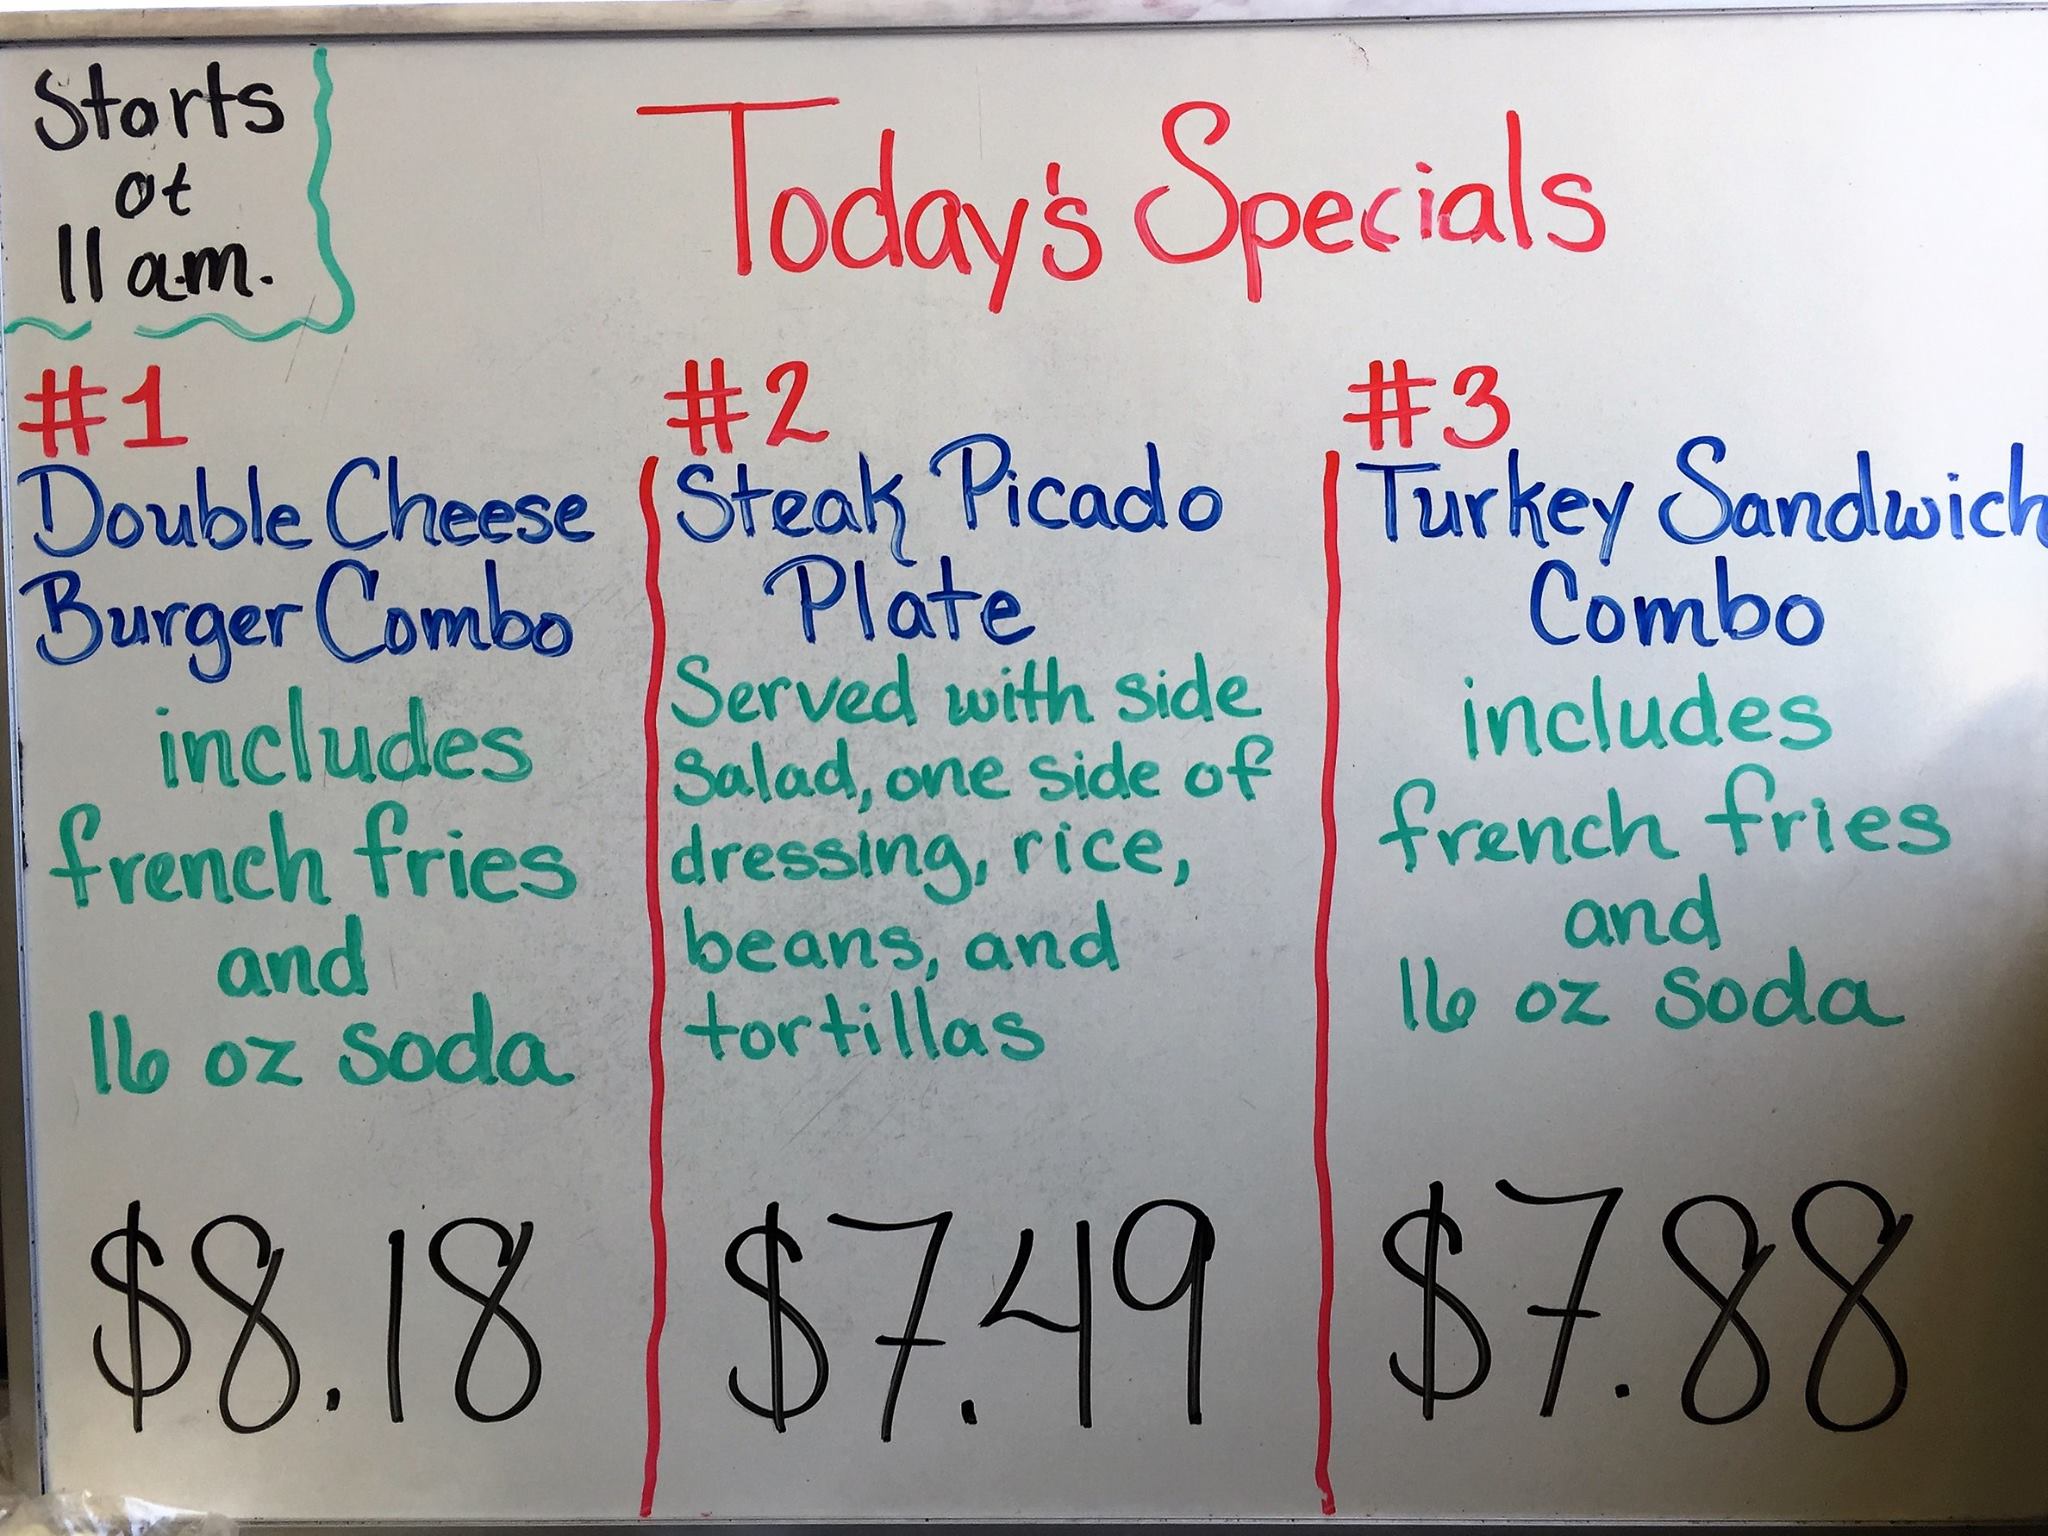 Starts
at
11 a.m.
Today's Specials
#1
Double Cheese
Burger Combo
includes
french fries
and
16 oz soda
$8.18
#2
Steak Picado
Plate
Served with side
salad, one side of
dressing, rice,
beans, and
tortillas
$7.49
#3
Turkey Sandwich
Combo
includes
french fries
and
16 oz soda
$7.88